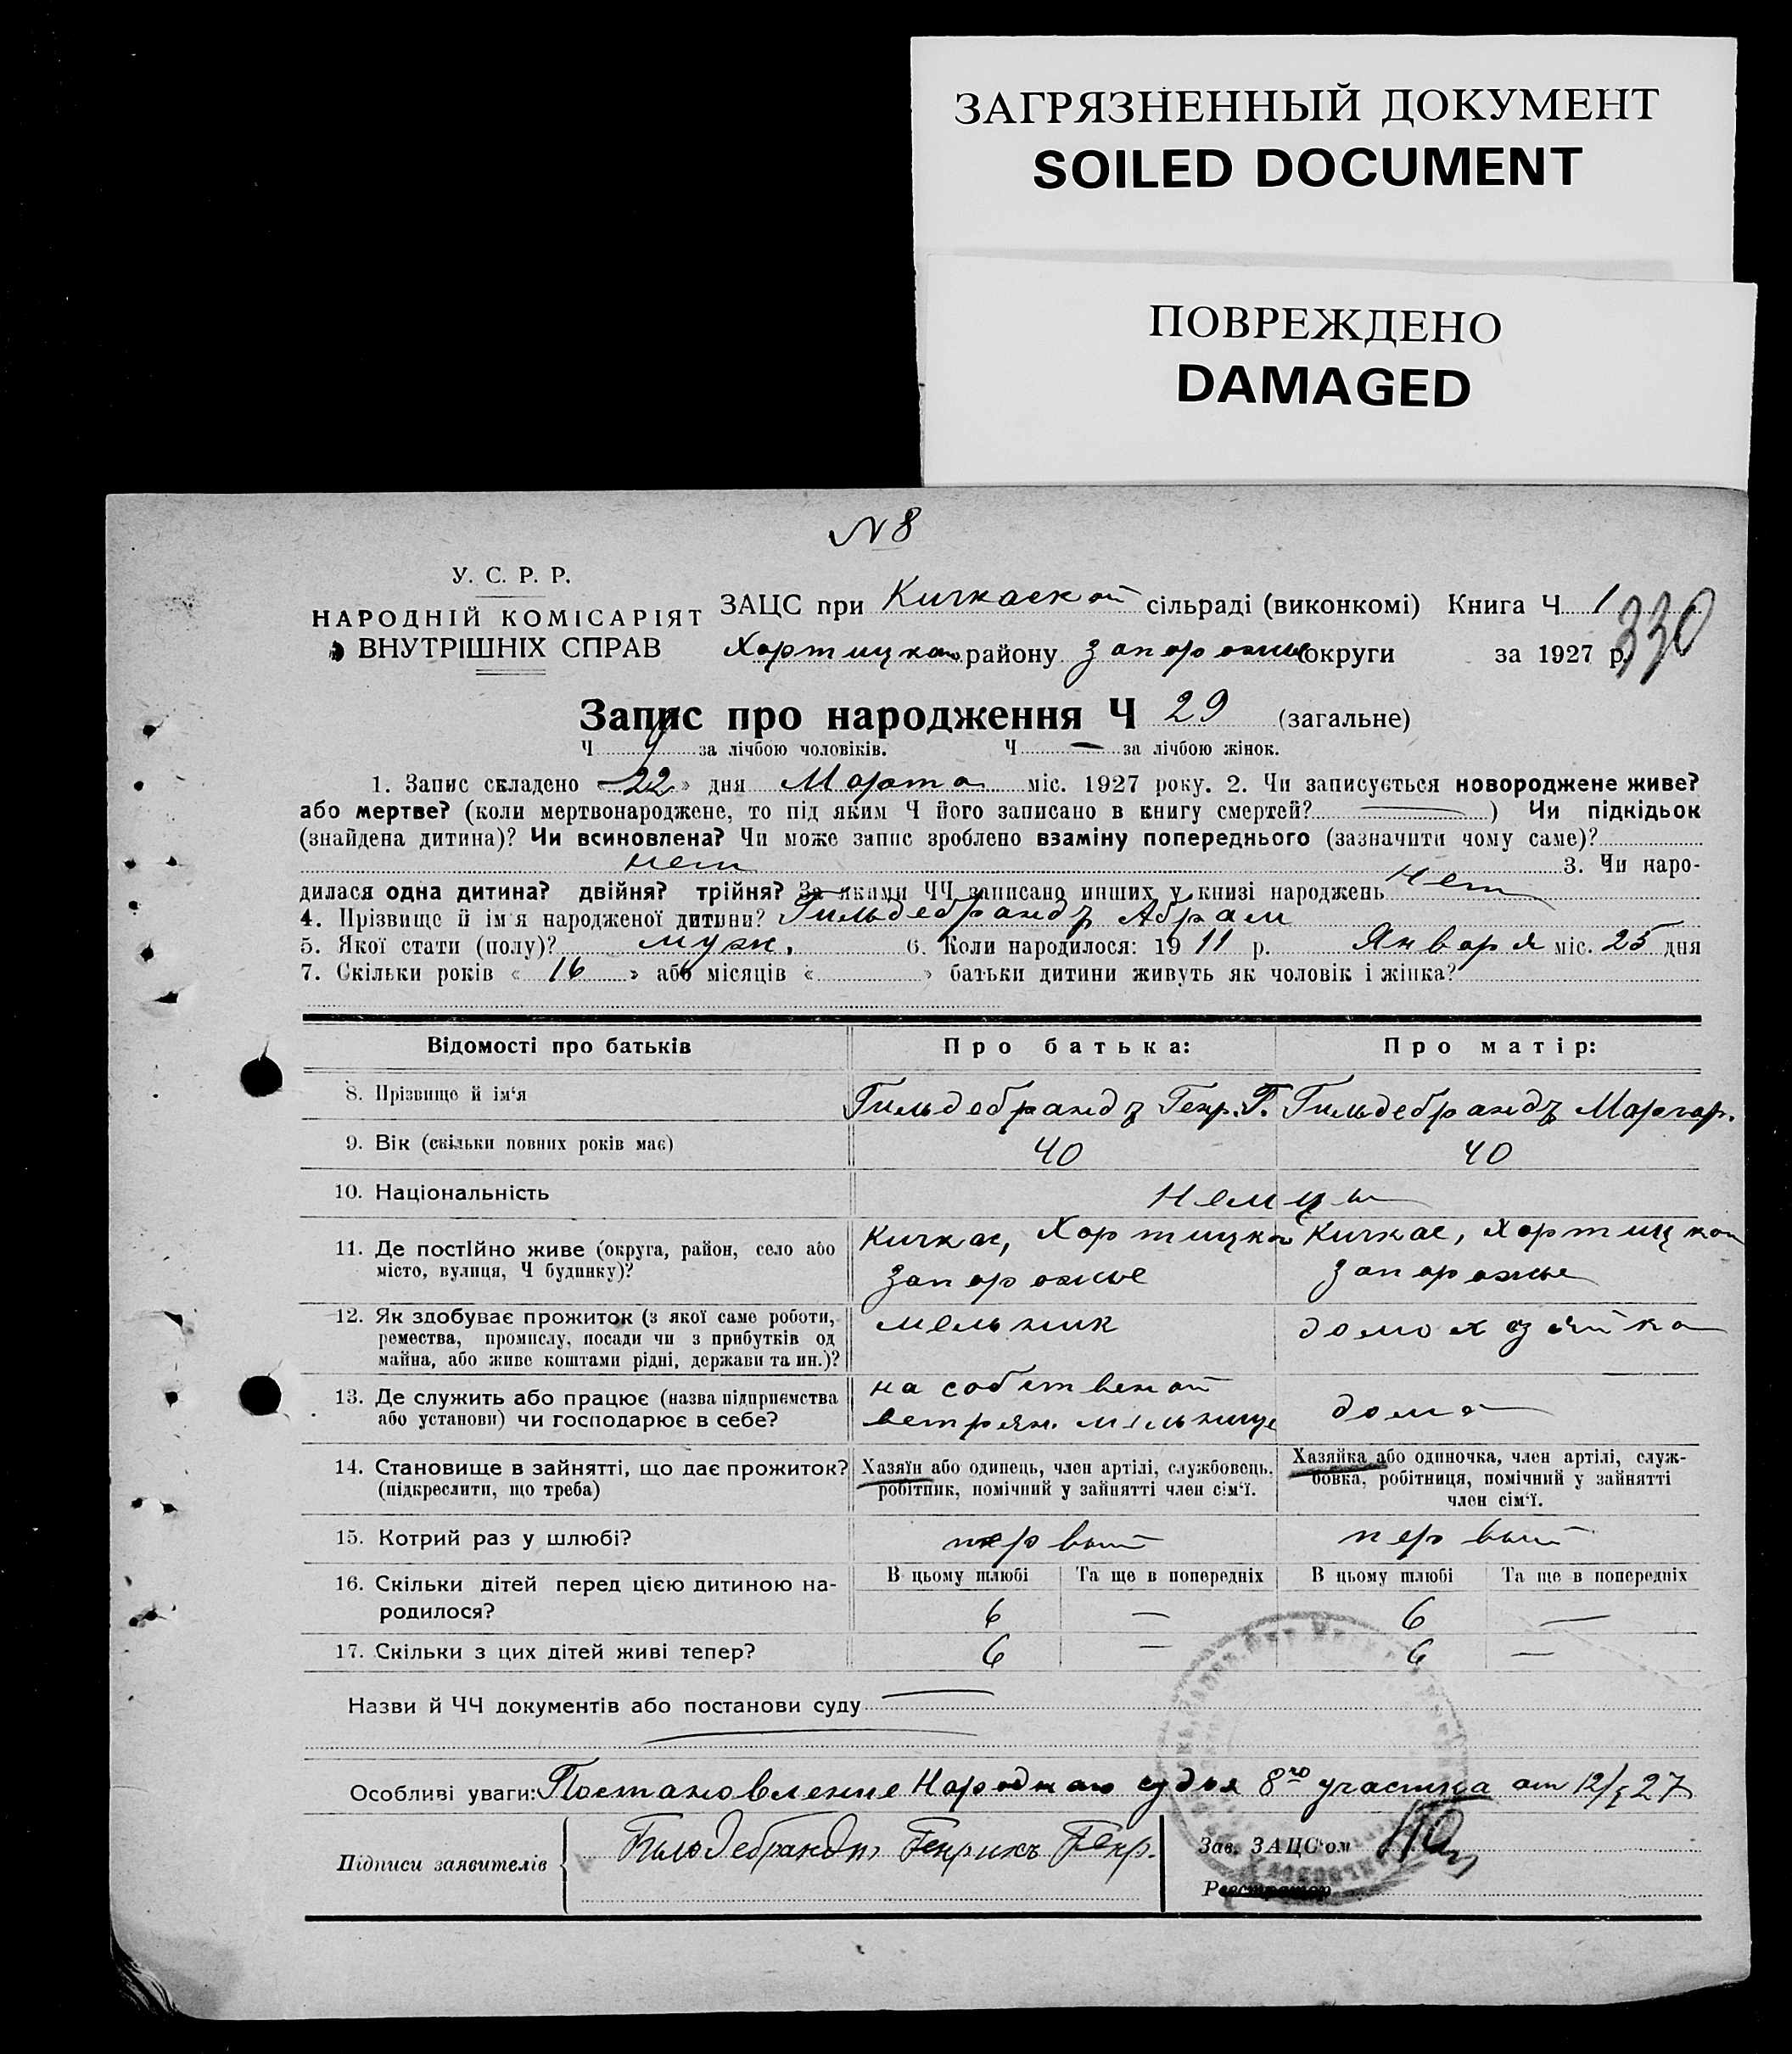 ЗАГРЯЗНЕННЫЙ ДОКУМЕНТ
SOILED DOCUMENT
ПОВРЕЖДЕНО
DAMAGED
N 8
У. С. Р. Р.
НАРОДНІЙ КОМІСАРІЯТ
ВНУТРІШНІХ СПРАВ
ЗАЦС при Кичкаской сільраді (виконкомі) Книга Ч. 1
330
Хортицкого району Запорожье округи за 1927 р.
Запис про народження Ч 29 (загальне)
Ч 9 за лічбою чоловіків. Ч — за лічбою жінок.
1. Запис складено « 22 » дня Марта міс. 1927 року. 2. Чи записується новороджене живе?
або мертве? (коли мертвонароджене, то під яким Ч його записано в книгу смертей? — ) Чи підкідьок
(знайдена дитина)? Чи всиновлена? Чи може запис зроблено взаміну попереднього (зазначити чому саме)?
нет 3. Чи наро-
дилася одна дитина? двійня? трійня? За якими ЧЧ записано инших у книзі народжень нет
4. Прізвище й ім'я народженої дитини? Гильдебрандъ Абрам
5. Якої стати (полу)? муж. 6. Коли народилося: 1911 р. Января міс. 25 дня
7. Скільки років « 16 » або місяців « » батьки дитини живуть як чоловік і жінка?
Відомості про батьків Про батька: Про матір:
8. Прізвище й ім'я Гильдебрандъ Генр. Г. Гильдебрандъ Маргар.
9. Вік (скільки повних років має) 40 40
10. Національність Немцы
11. Де постійно живе (округа, район, село або місто, вулиця, Ч будинку)? Кичкас, Хортицкой Запорожье Кичкас, Хортицкой Запорожье
12. Як здобуває прожиток (з якої саме роботи, ремества, промислу, посади чи з прибутків од майна, або живе коштами рідні, держави та ин.)? мельник домохозяйка
13. Де служить або працює (назва підприємства або установи) чи господарює в себе? на собственой ветрян. мельнице дома
14. Становище в зайнятті, що дає прожиток? (підкреслити, що треба) Хазяїн або одинець, член артілі, службовець, робітник, помічний у зайнятті член сім'ї. Хазяйка або одиночка, член артілі, служ-бовка, робітниця, помічний у зайнятті член сім'ї.
15. Котрий раз у шлюбі? первый первый
16. Скільки дітей перед цією дитиною на-родилося? В цьому шлюбі 6 Та ще в попередніх — В цьому шлюбі 6 Та ще в попередніх —
17. Скільки з цих дітей живі тепер? 6 — 6 —
Назви й ЧЧ документів або постанови суду —
Особливі уваги: Постановление Народнаго судья 8го участка от 12/I 27
Підписи заявителів Гильдебрандъ Генрихъ Генр.
Зав. ЗАЦС'ом
Реєстратор